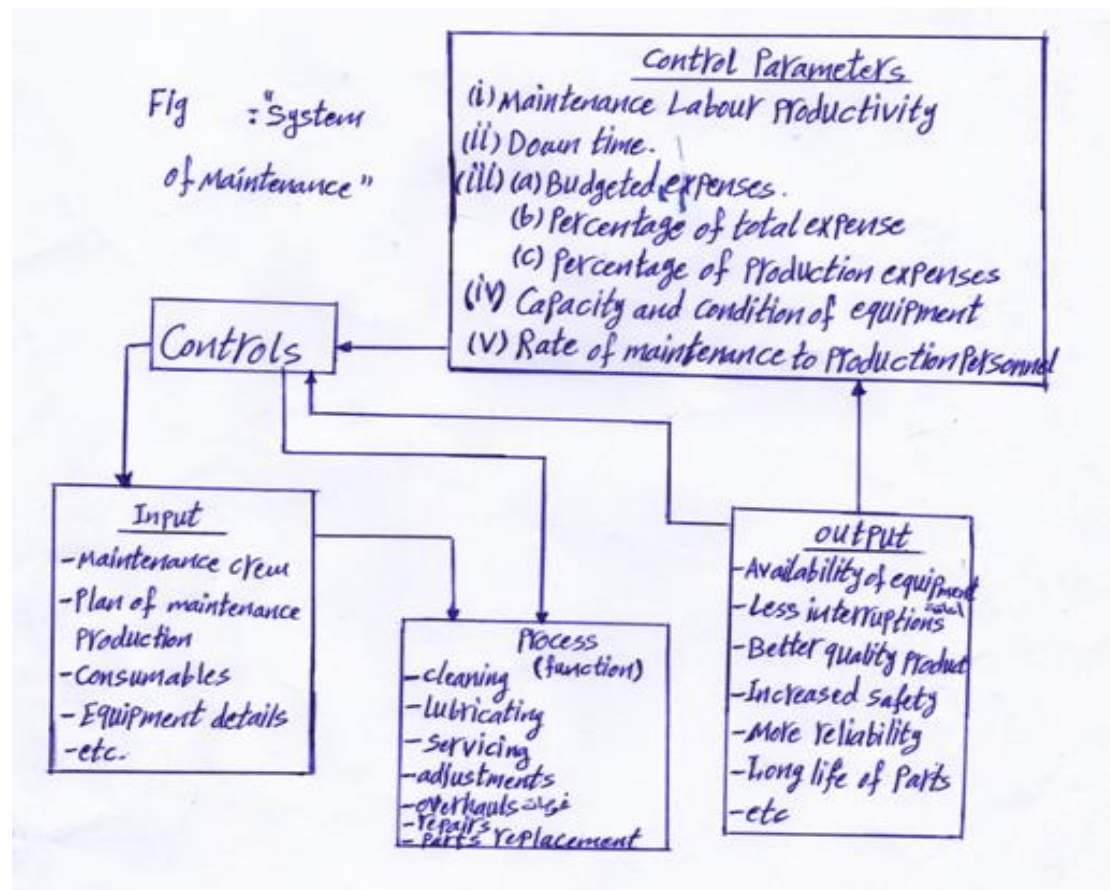 Fig :"System
of Maintenance"
Control Parameters
(i) Maintenance Labour Productivity
(ii) Down time.
(iii) (a) Budgeted expenses.
(b) Percentage of total expense
(c) Percentage of Production expenses
(iv) Capacity and condition of equipment
(V) Rate of maintenance to Production Personnel
Controls
Input
-Maintenance crew
-Plan of maintenance
Production
-Consumables
-Equipment details
-etc.
Process
(function)
-cleaning
-lubricating
-servicing
-adjustments
-overhauls
-repairs
-Parts replacement
output
-Availability of equipment
-Less interruptions
-Better quality Product
-Increased safety
-More reliability
-Long life of Parts
-etc